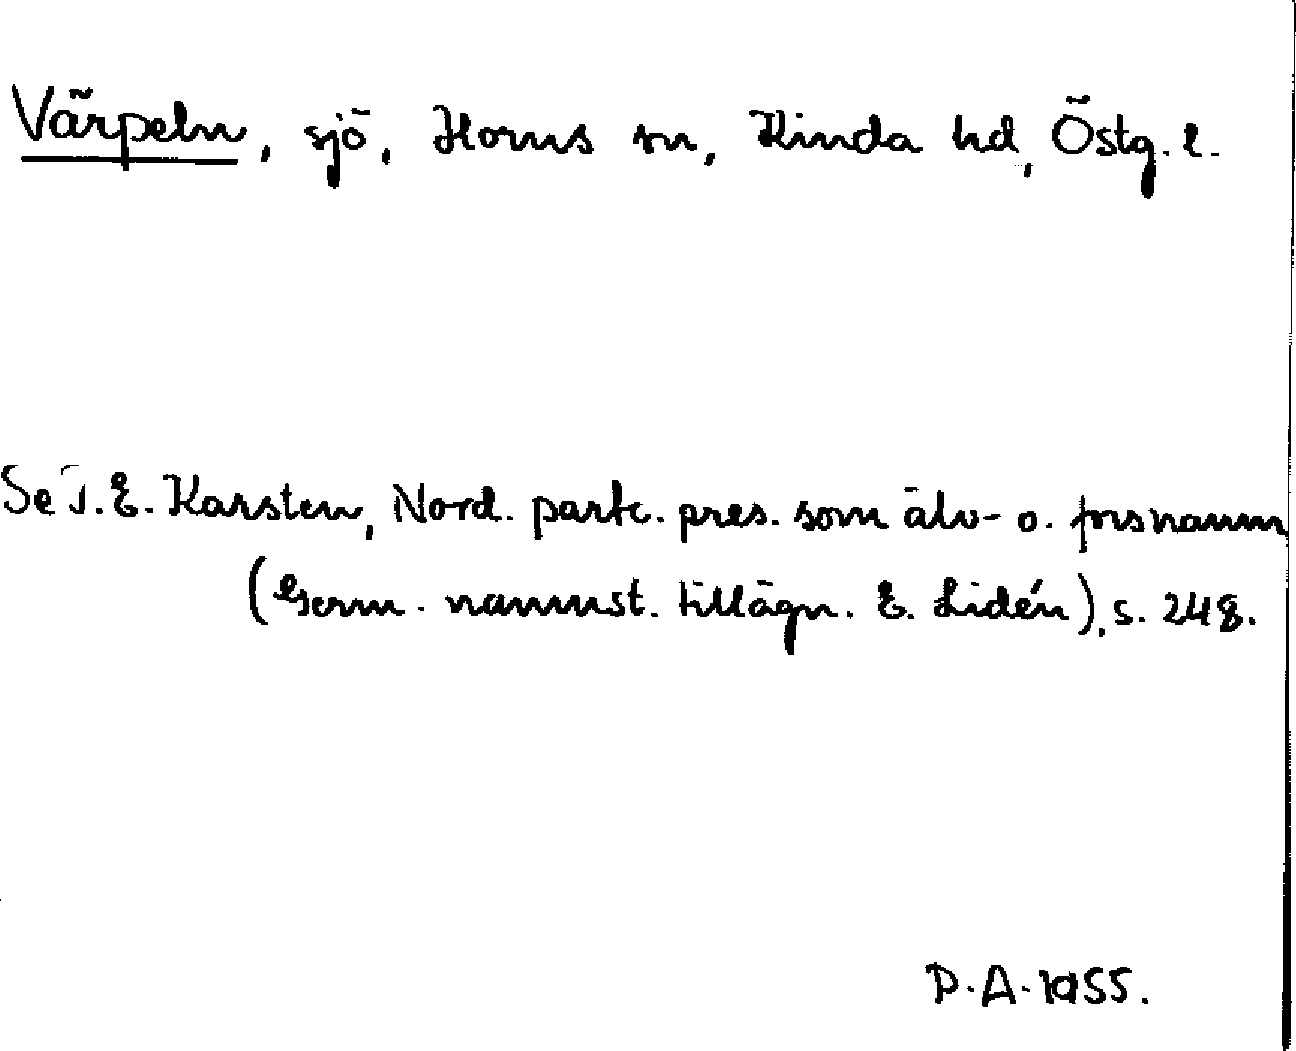 Värpeln, sjö, Horns sn, Kinda hd, Östg. l.
Se T. E. Karsten, Nord. partc. pres. som älv- o. forsnamn
(Germ. namnst. tillägn. E. Lidén), s. 248.
P. A. 1955.